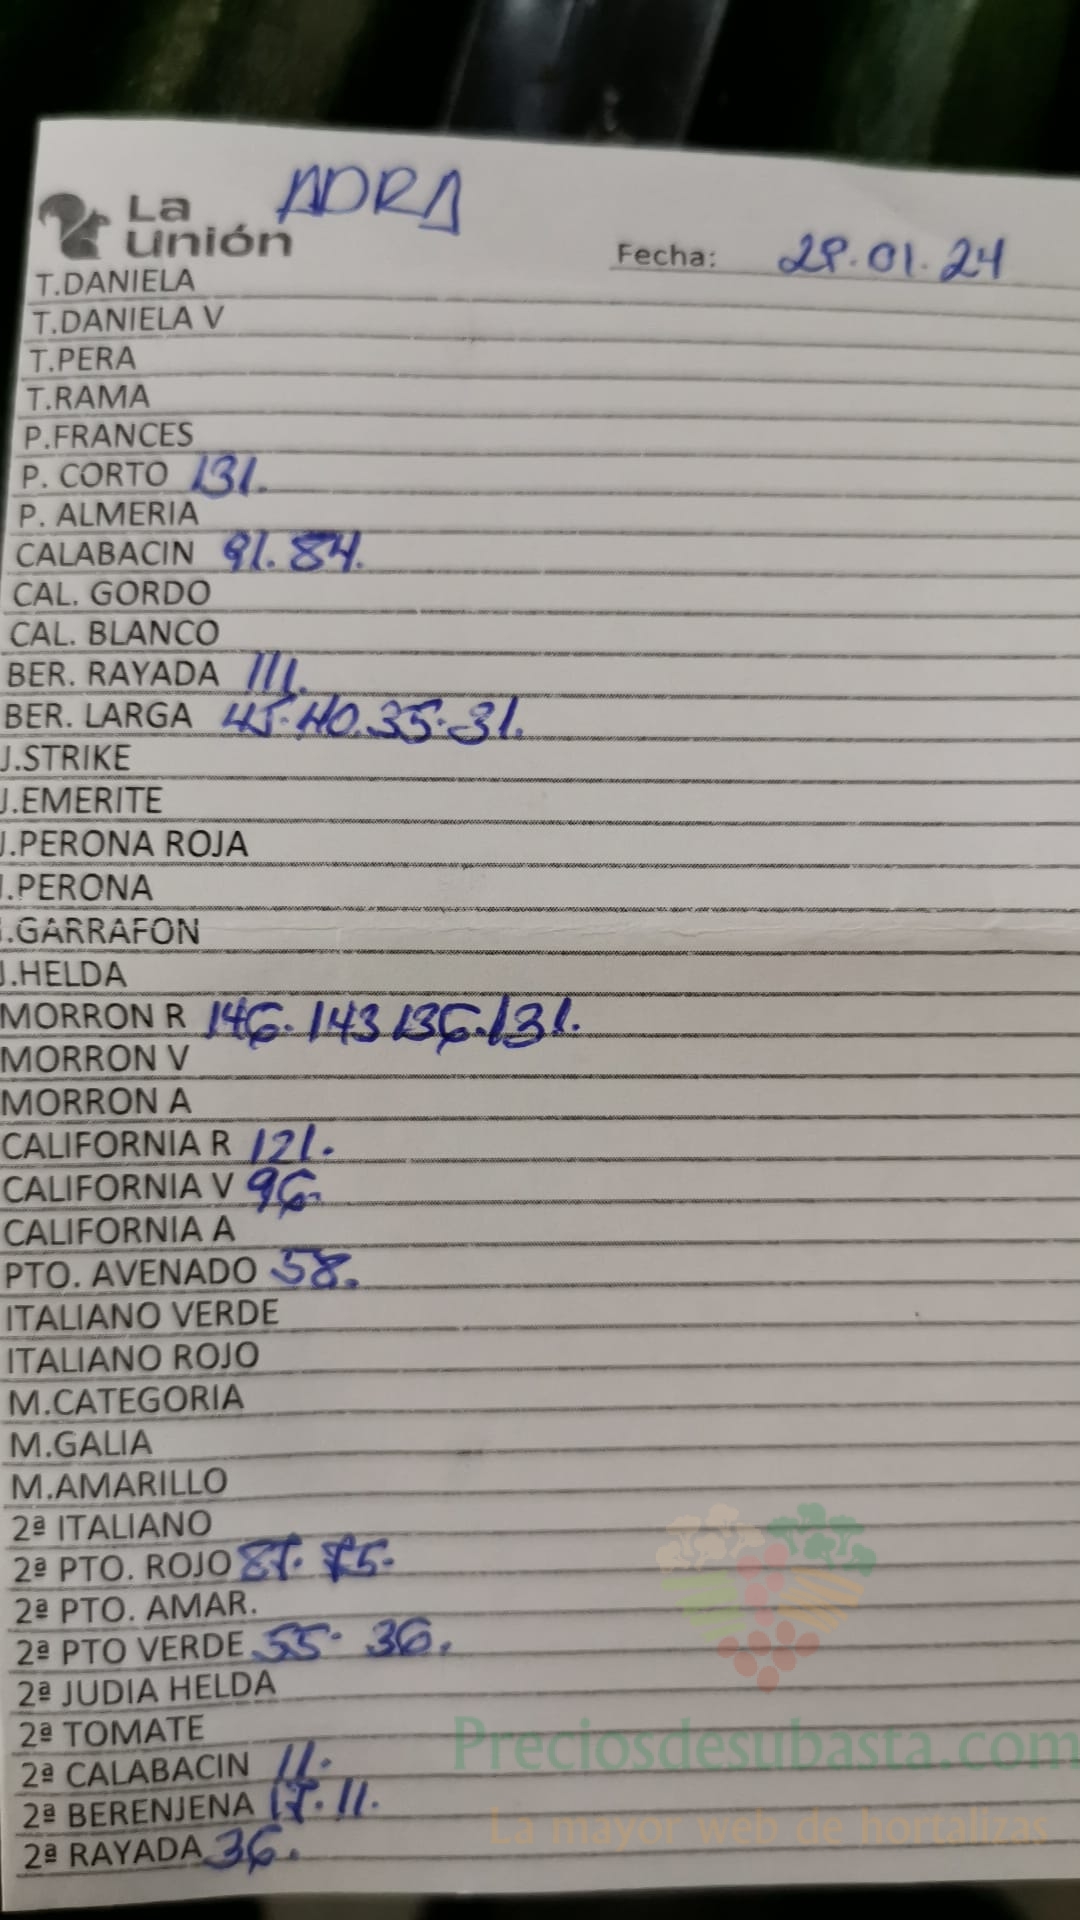 La unión ADRA
Fecha: 29.01.24
T.DANIELA
T.DANIELA V
T.PERA
T.RAMA
P.FRANCES
P. CORTO 131.
P. ALMERIA
CALABACIN 91. 84.
CAL. GORDO
CAL. BLANCO
BER. RAYADA 111.
BER. LARGA 45. 40. 35. 31.
J.STRIKE
J.EMERITE
J.PERONA ROJA
J.PERONA
J.GARRAFON
J.HELDA
MORRON R 146. 143 136. 131.
MORRON V
MORRON A
CALIFORNIA R 121.
CALIFORNIA V 96.
CALIFORNIA A
PTO. AVENADO 58.
ITALIANO VERDE
ITALIANO ROJO
M.CATEGORIA
M.GALIA
M.AMARILLO
2ª ITALIANO
2ª PTO. ROJO 87. 75.
2ª PTO. AMAR.
2ª PTO VERDE 55. 36.
2ª JUDIA HELDA
2ª TOMATE
2ª CALABACIN 11.
2ª BERENJENA 17. 11.
2ª RAYADA 36.
Preciosdesubasta.com
La mayor web de hortalizas